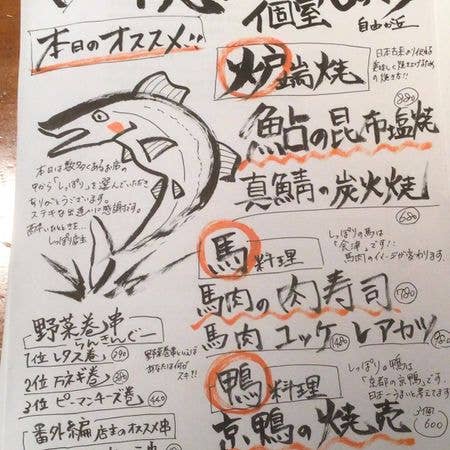 個室
自由が丘
本日のオススメ
炉端焼
880
鮎の昆布塩焼
真鯖の炭火焼
680
本日は数多くあるお店の
中から「しっぽり」を選んでいただき
ありがとうございます。
ステキな出逢いに感謝です。
しっぽり店主
馬料理
しっぽりの馬は
「会津」です!!
馬肉のイメージが変わります。
馬肉の肉寿司
780
馬肉ユッケ
1480
レアカツ
980
野菜巻串
らんきんぐー
1位 レタス巻
290
2位 万ネギ巻
3位 ピーマンチーズ巻
野菜巻串といえば
あなたは何が
スキ!!
鴨料理
しっぽりの鴨は
「京都の京鴨」です。
日本一うまいと考えてます
京鴨の焼売
3個
600
番外編 店主のオススメ串